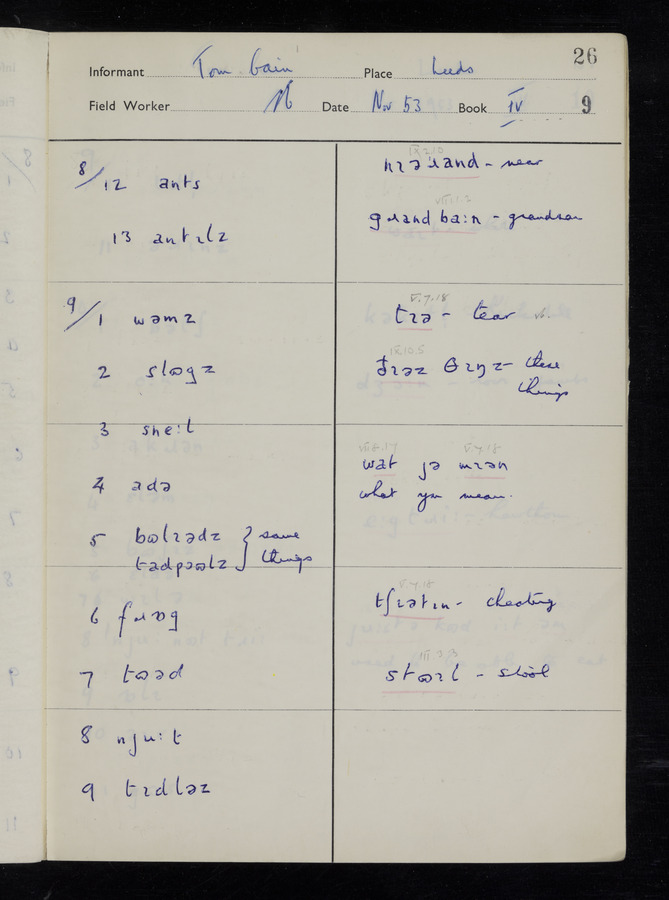 26
Informant Tom Cain Place Leeds
Field Worker Date Nov 53 Book IV 9
8/12 ants
13 antɪlz
9/1 wəmz
2 slɒgz
3 sneːl
4 adə
5 bʊlɪədz } same
tadpɔʊlz } things
6 fɹɒg
7 tʊəd
8 njuːt
9 tɪdləz
IX.2.10
nɪəɹand - near
VIII.1.2
gɹandbaːn - grandson
V.7.18
tɪə - tear v.
IX.10.5
ðɪəz θɪŋz - these
things
V.7.18
wat jə mɪən
what you mean.
V.7.18
tʃɪətɪn - cheating
III.3.3
stʊɪl - stool